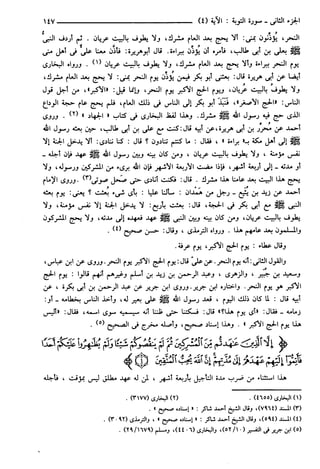 الجزء الثاني - سورة التوبة : الآية (٤)
١٤٧
النحر، يُؤذِّنون بمِنَى: ألا يحج بعد العام مشرك، ولا يطوف بالبيت عريان. ثم أردف النبيُّ
ﷺ بعلي بن أبي طالب، فأمره أن يُؤذِّن ببراءة. قال أبو هريرة: فأذَّن معنا عليٌّ في أهل منى
يوم النحر ببراءة وألا يحج بعد العام مشرك، ولا يطوف بالبيت عريان (١). ورواه البخاري
أيضا عن أبي هريرة قال: بعثني أبو بكر فيمن يُؤذِّن يوم النحر بمِنَى: لا يحج بعد العام مشرك،
ولا يطوف بالبيت عُريان، ويومُ الحج الأكبر يوم النحر، وإنما قيل: «الأكبر»، من أجل قول
الناس: «الحج الأصغر»، فَنَبَذَ أبو بكر إلى الناس في ذلك العام، فلم يحج عام حجة الوداع
الذي حج فيه رسول الله ﷺ مشرك. وهذا لفظ البخاري في كتاب «الجهاد» (٢). وروى
أحمد عن مُحَرَّر بن أبي هريرة، عن أبيه قال: كنت مع علي بن أبي طالب، حين بعثه رسول الله
ﷺ إلى أهل مكة بـ«براءة»، فقال: ما كنتم تنادون؟ قال: كنا ننادي: ألا يدخل الجنة إلا
نفس مؤمنة، ولا يطوف بالبيت عريان، ومن كان بينه وبين رسول الله ﷺ عهد فإن أجله -
أو مدته - إلى أربعة أشهر، فإذا مضت الأربعة الأشهر فإن الله بريء من المشركين ورسوله، ولا
يحج هذا البيت بعد عامنا هذا مشرك. قال: فكنت أنادي حتى صَحِل صوتي (٣). وروى الإمام
أحمد عن زيد بن يُثيع - رجل من همدان: سألنا عليا: بأي شيء بُعثتَ؟ يعني: يوم بعثه
النبي ﷺ مع أبي بكر في الحجة، قال: بعثت بأربع: لا يدخل الجنة إلا نفس مؤمنة، ولا
يطوف بالبيت عريان، ومن كان بينه وبين النبي ﷺ عهد فعهده إلى مدته، ولا يحج المشركون
والمسلمون بعد عامهم هذا. ورواه الترمذي، وقال: حسن صحيح (٤).
وقال عطاء: يوم الحج الأكبر، يوم عرفة.
والقول الثاني: أنه يوم النحر. عن عليٍّ قال: يوم الحج الأكبر يوم النحر. وروى عن ابن عباس،
وسعيد بن جُبير، والزهري، وعبد الرحمن بن زيد بن أسلم وغيرهم أنهم قالوا: يوم الحج
الأكبر هو يوم النحر. واختاره ابن جرير. وروى ابن جرير عن عبد الرحمن بن أبي بكرة، عن
أبيه قال: لما كان ذلك اليوم، قعد رسول الله ﷺ على بعير له، وأخذ الناس بخطامه - أو:
زمامه - فقال: «أي يوم هذا؟» قال: فسكتنا حتى ظننا أنه سيسميه سوى اسمه، فقال: «أليس
هذا يوم الحج الأكبر». وهذا إسناد صحيح، وأصله مخرج في الصحيح (٥).
﴿إِلَّا ٱلَّذِينَ عَٰهَدتُّم مِّنَ ٱلْمُشْرِكِينَ ثُمَّ لَمْ يَنقُصُوكُمْ شَيْـًٔا وَلَمْ يُظَٰهِرُوا۟ عَلَيْكُمْ أَحَدًا
فَأَتِمُّوٓا۟ إِلَيْهِمْ عَهْدَهُمْ إِلَىٰ مُدَّتِهِمْ إِنَّ ٱللَّهَ يُحِبُّ ٱلْمُتَّقِينَ ٤﴾
هذا استثناء من ضرب مدة التأجيل بأربعة أشهر، لمن له عهد مطلق ليس بمؤقت، فأجله
(١) البخاري (٤٦٥٥).
(٢) البخاري (٣١٧٧).
(٣) المسند (٧٩٦٤)، وقال الشيخ أحمد شاكر: «إسناده صحيح».
(٤) المسند (٥٩٤)، وقال الشيخ أحمد شاكر: «إسناده صحيح»، والترمذي (٣٠٩٢).
(٥) ابن جرير في التفسير (١٠/ ٥٢)، والبخاري (٤٤٠٦)، ومسلم (١٦٧٩/ ٢٩).